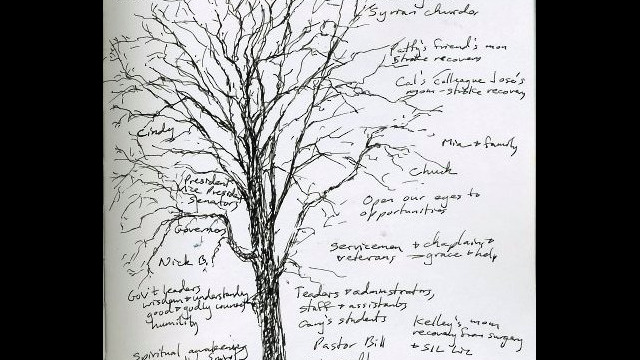 Syrian churches
Patty's friend's mom
stroke recovery
Cal's colleague José's
mom - stroke recovery
Cindy
Mia + family
Chuck
President
Vice President
Senators
Open our eyes to
opportunities
Governor
servicemen + chaplains +
veterans - grace + help
Nick B.
Gov't leaders
wisdom + understanding
good + godly counsel
humility
Teachers + administrators,
staff + assistants
Gary's students
Kelley's mom
recovery from surgery
+ SIL Liz
Pastor Bill
Spiritual awakening